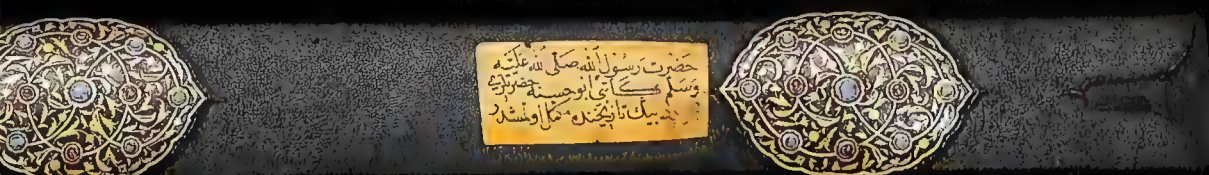 حضرت رسول الله صلى الله عليه
وسلم كاتى ابو حسنه حضرتلرى
بيك تاريخنده مكمل اولمشدر